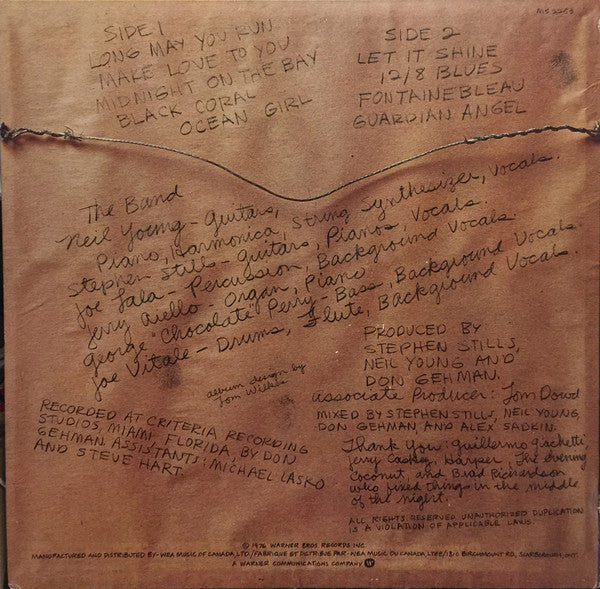 MS 2253
SIDE 1
LONG MAY YOU RUN
MAKE LOVE TO YOU
MIDNIGHT ON THE BAY
BLACK CORAL
OCEAN GIRL
SIDE 2
LET IT SHINE
12/8 BLUES
FONTAINEBLEAU
GUARDIAN ANGEL
The Band
Neil Young - Guitars,
Piano, Harmonica, String Synthesizer, Vocals.
Stephen Stills - Guitars, Pianos, Vocals.
Joe Lala - Percussion, Background Vocals.
Jerry Aiello - Organ, Piano
George "Chocolate" Perry - Bass, Background Vocals
Joe Vitale - Drums, Flute, Background Vocals.
album design by
Tom Wilkes
RECORDED AT CRITERIA RECORDING
STUDIOS, MIAMI, FLORIDA, BY DON
GEHMAN. ASSISTANTS: MICHAEL LASKO
AND STEVE HART.
PRODUCED BY
STEPHEN STILLS,
NEIL YOUNG AND
DON GEHMAN.
Associate Producer: Tom Dowd
MIXED BY STEPHEN STILLS, NEIL YOUNG,
DON GEHMAN, AND ALEX SADKIN.
Thank You: Guillermo Giachetti
Jerry Harper. The evening
Coconut and Brad Richardson
who fixed things in the middle
of the night.
ALL RIGHTS RESERVED. UNAUTHORIZED DUPLICATION
IS A VIOLATION OF APPLICABLE LAWS.
© 1976 WARNER BROS. RECORDS INC.
MANUFACTURED AND DISTRIBUTED BY - WEA MUSIC OF CANADA, LTD. / FABRIQUE ET DISTRIBUE PAR - WEA MUSIC DU CANADA, LTEE / 1810 BIRCHMOUNT RD., SCARBOROUGH, ONT.
A WARNER COMMUNICATIONS COMPANY